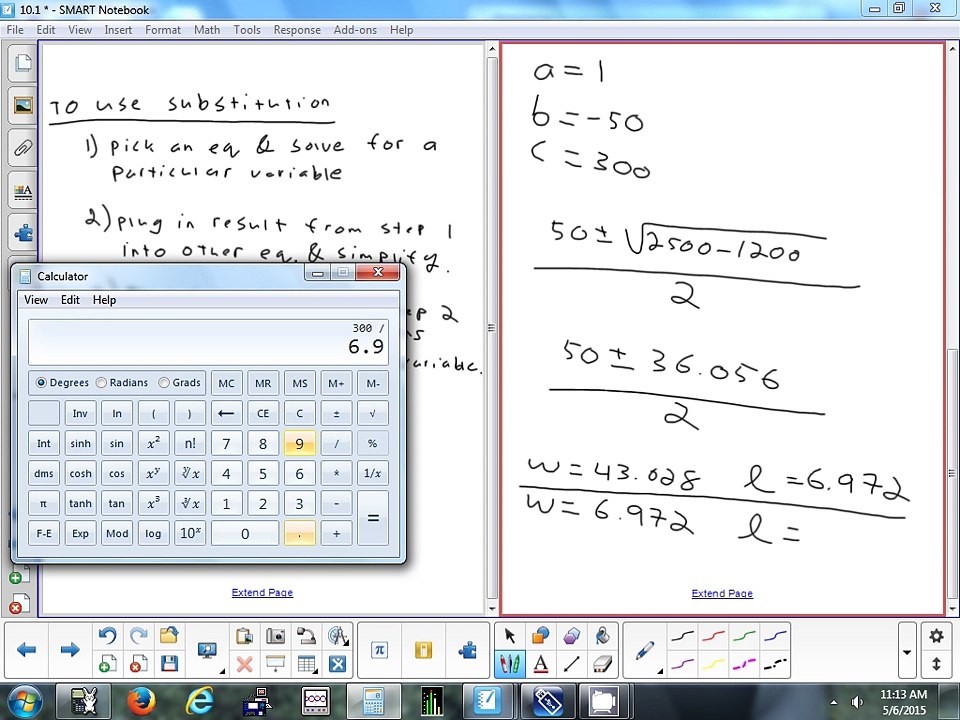 10.1 * - SMART Notebook
File Edit View Insert Format Math Tools Response Add-ons Help
TO use substitution
1) pick an eq & solve for a
particular variable
2) plug in result from step 1
into other eq. & simplify.
ep 2
ns
variable.
Extend Page
Calculator
View Edit Help
300 /
6.9
Degrees Radians Grads MC MR MS M+ M-
Inv ln ( ) ← CE C ± √
Int sinh sin x² n! 7 8 9 / %
dms cosh cos xʸ ʸ√x 4 5 6 * 1/x
π tanh tan x³ ³√x 1 2 3 - =
F-E Exp Mod log 10ˣ 0 . +
a = 1
b = -50
c = 300
50 ± √2500-1200
2
50 ± 36.056
2
w = 43.028 l = 6.972
w = 6.972 l =
Extend Page
π
A
11:13 AM
5/6/2015